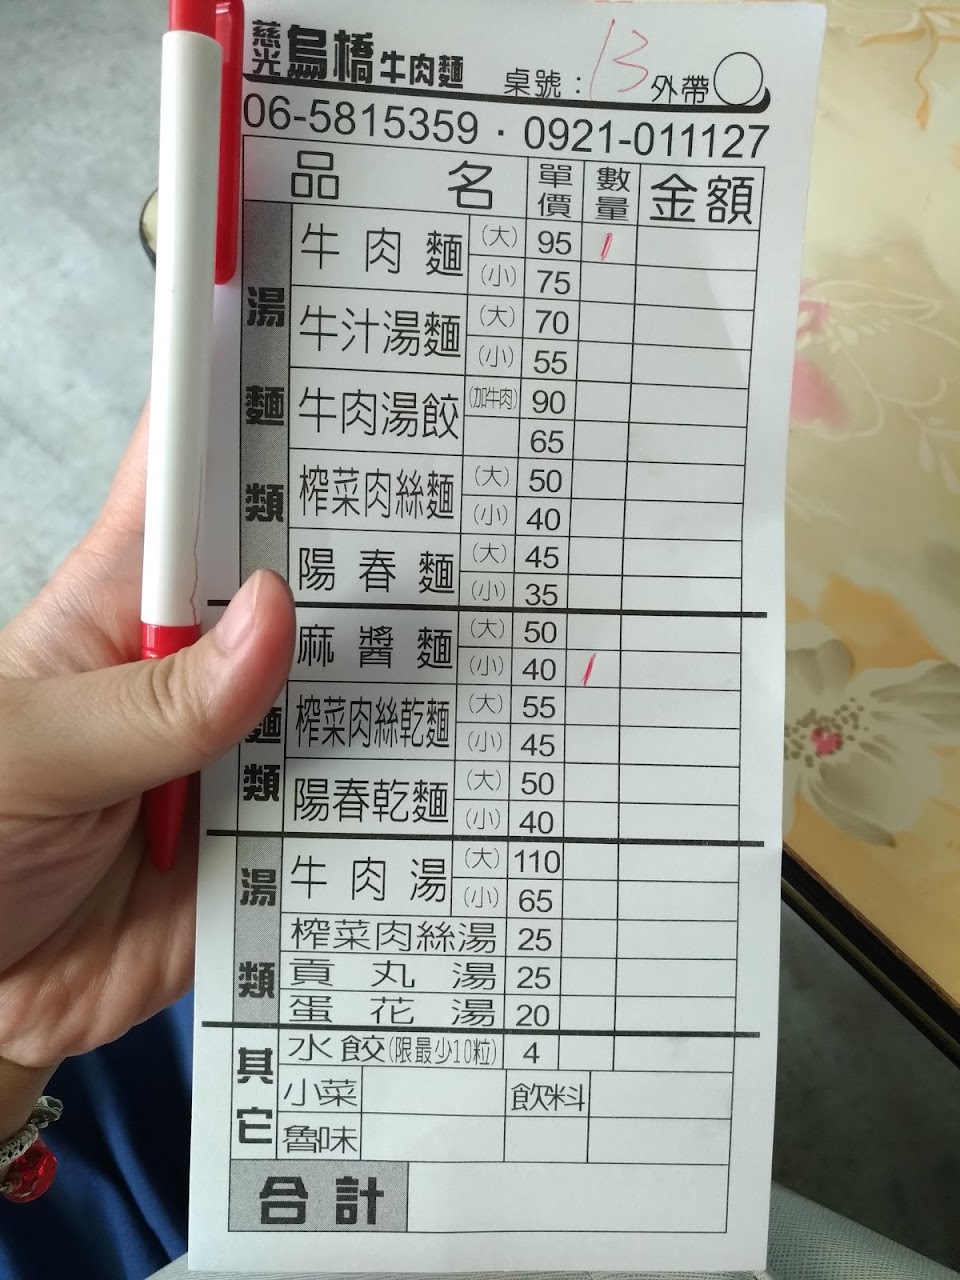 慈光 烏橋 牛肉麵 桌號：13 外帶
06-5815359 · 0921-011127
品名 單價 數量 金額
湯麵類
牛肉麵 (大) 95 1
(小) 75
牛汁湯麵 (大) 70
(小) 55
牛肉湯餃 (加牛肉) 90
65
榨菜肉絲麵 (大) 50
(小) 40
陽春麵 (大) 45
(小) 35
麵類
麻醬麵 (大) 50
(小) 40 1
榨菜肉絲乾麵 (大) 55
(小) 45
陽春乾麵 (大) 50
(小) 40
湯類
牛肉湯 (大) 110
(小) 65
榨菜肉絲湯 25
貢丸湯 25
蛋花湯 20
其它
水餃(限最少10粒) 4
小菜 飲料
魯味
合計